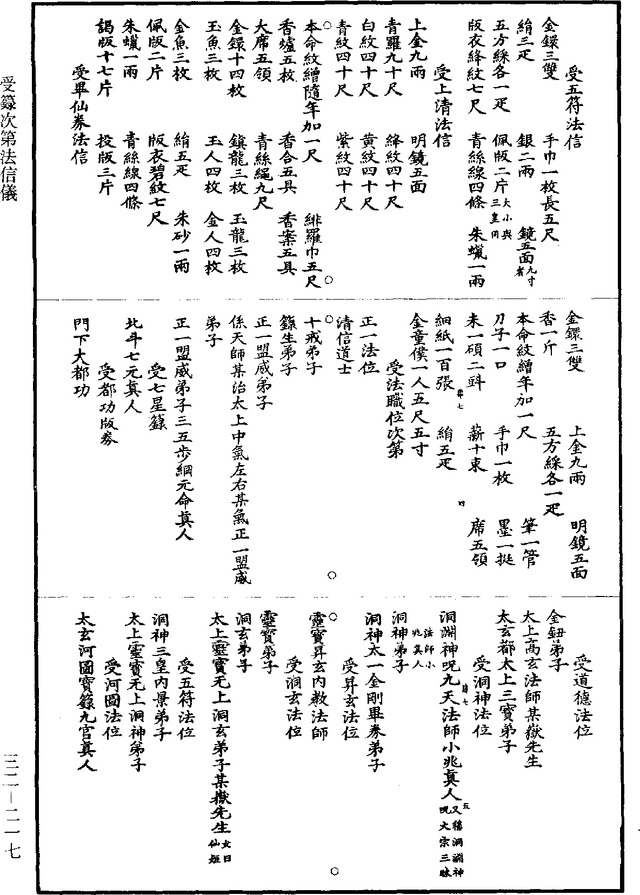 受籙次第法信儀
受五符法信
金鐶三雙　手巾一枚長五尺
絹三疋　銀二兩　鏡五面九寸者
五方綵各一疋　佩版二片大小與三皇同
版衣絳紋七尺　青絲線四條　朱蠟一兩
受上清法信
上金九兩　明鏡五面
青羅九十尺　絳紋四十尺
白紋四十尺　黄紋四十尺
青紋四十尺　紫紋四十尺
本命紋繒隨年加一尺　緋羅巾五尺
香爐五枚　香合五具　香案五具
大席五領　青絲繩九尺
金鐶十四枚　鎮龍三枚　玉龍三枚
玉魚三枚　玉人四枚　金人四枚
金魚三枚　絹五疋　朱砂一兩
佩版二片　版衣碧紋七尺
朱蠟一兩　青絲線四條
謁版十七片　投版三片
受畢仙券法信
金鐶三雙　上金九兩　明鏡五面
香一斤　五方綵各一疋
本命紋繒年加一尺　筆一管
刀子一口　手巾一枚　墨一挺
米一碩二㪷　薪十束　席五領
細紙一百張　絹五疋
金童僕一人五尺五寸
受法職位次第
正一法位
清信道士
十戒弟子
籙生弟子
正一盟威弟子
係天師某治太上中氣左右某氣正一盟威
弟子
正一盟威弟子三五步綱元命真人
受七星籙
北斗七元真人
受都功版券
門下大都功
受道德法位
金鈕弟子
太上高玄法師某嶽先生
太玄都太上三寶弟子
受洞神法位
洞淵神呪九天法師小兆真人又稱洞淵神呪大宗三昧
法師小兆真人
洞神弟子
洞神太一金剛畢券弟子
受昇玄法位
靈寶昇玄内教法師
受洞玄法位
靈寶弟子
洞玄弟子
太上靈寶无上洞玄弟子某嶽先生女曰仙姬
受五符法位
洞神三皇内景弟子
太上靈寶无上洞神弟子
受河圖法位
太玄河圖寶籙九宫真人
三二—二一七